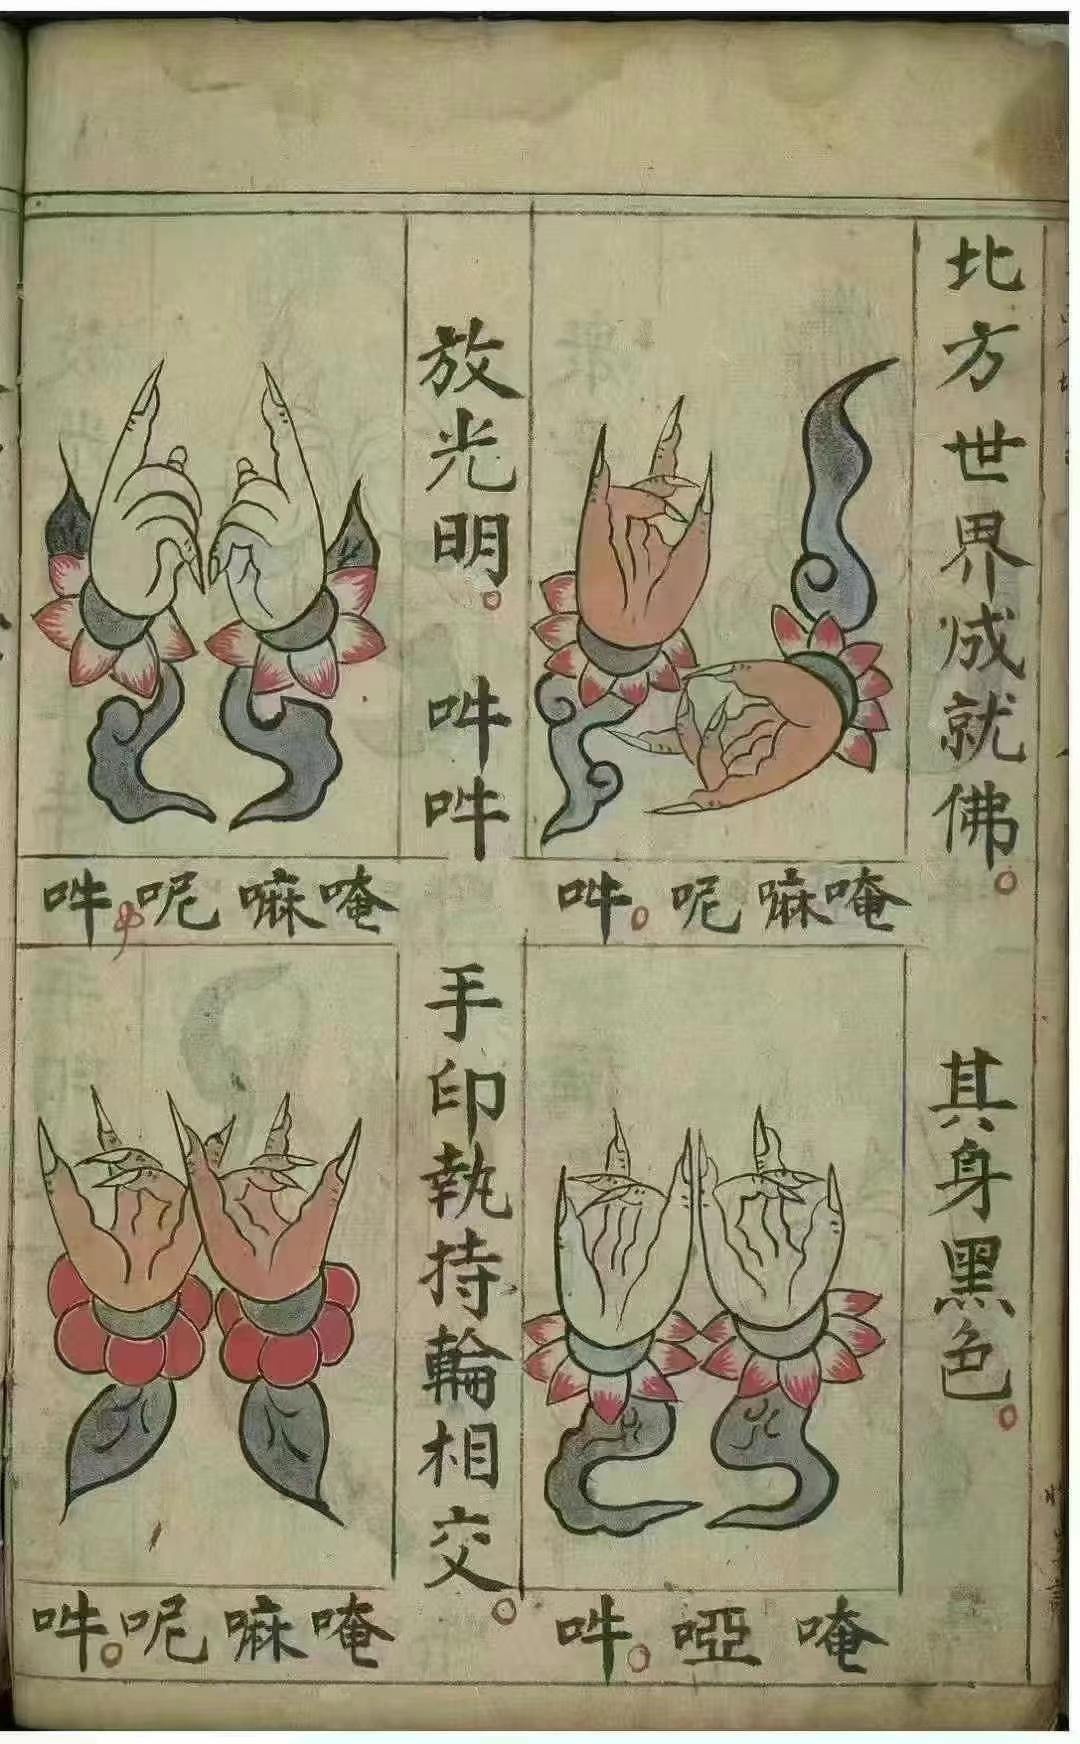 北方世界成就佛。
其身黑色。
唵嘛呢吽。
唵啞吽。
放光明。
吽吽
手印執持輪相交。
唵嘛呢吽。
唵嘛呢吽。